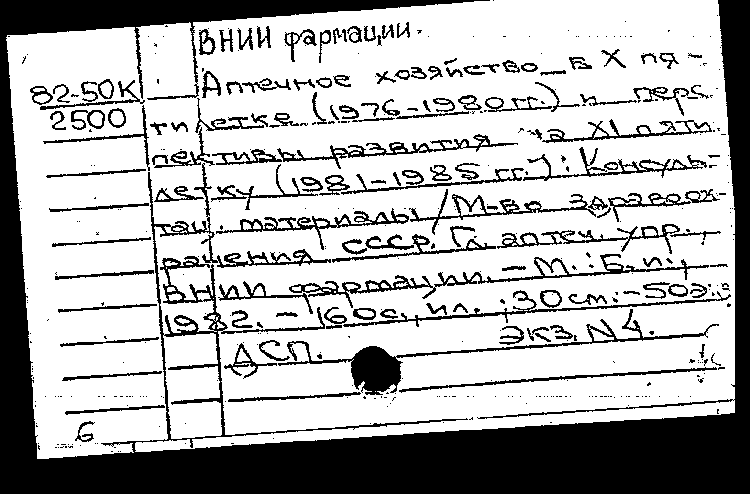 ВНИИ фармации.
82-50К
2500
Аптечное хозяйство в X пя-
тилетке (1976-1980 гг.) и перс
пективы развития на XI пяти
летку (1981-1985 гг.): Консуль-
тац. материалы / М-во здравоох-
ранения СССР. Гл. аптеч. упр.,
ВНИИ фармации. – М.: Б. и.,
1982. – 160 с., ил.; 30 см. – 50 э.;
ДСП. экз. N 4.
6